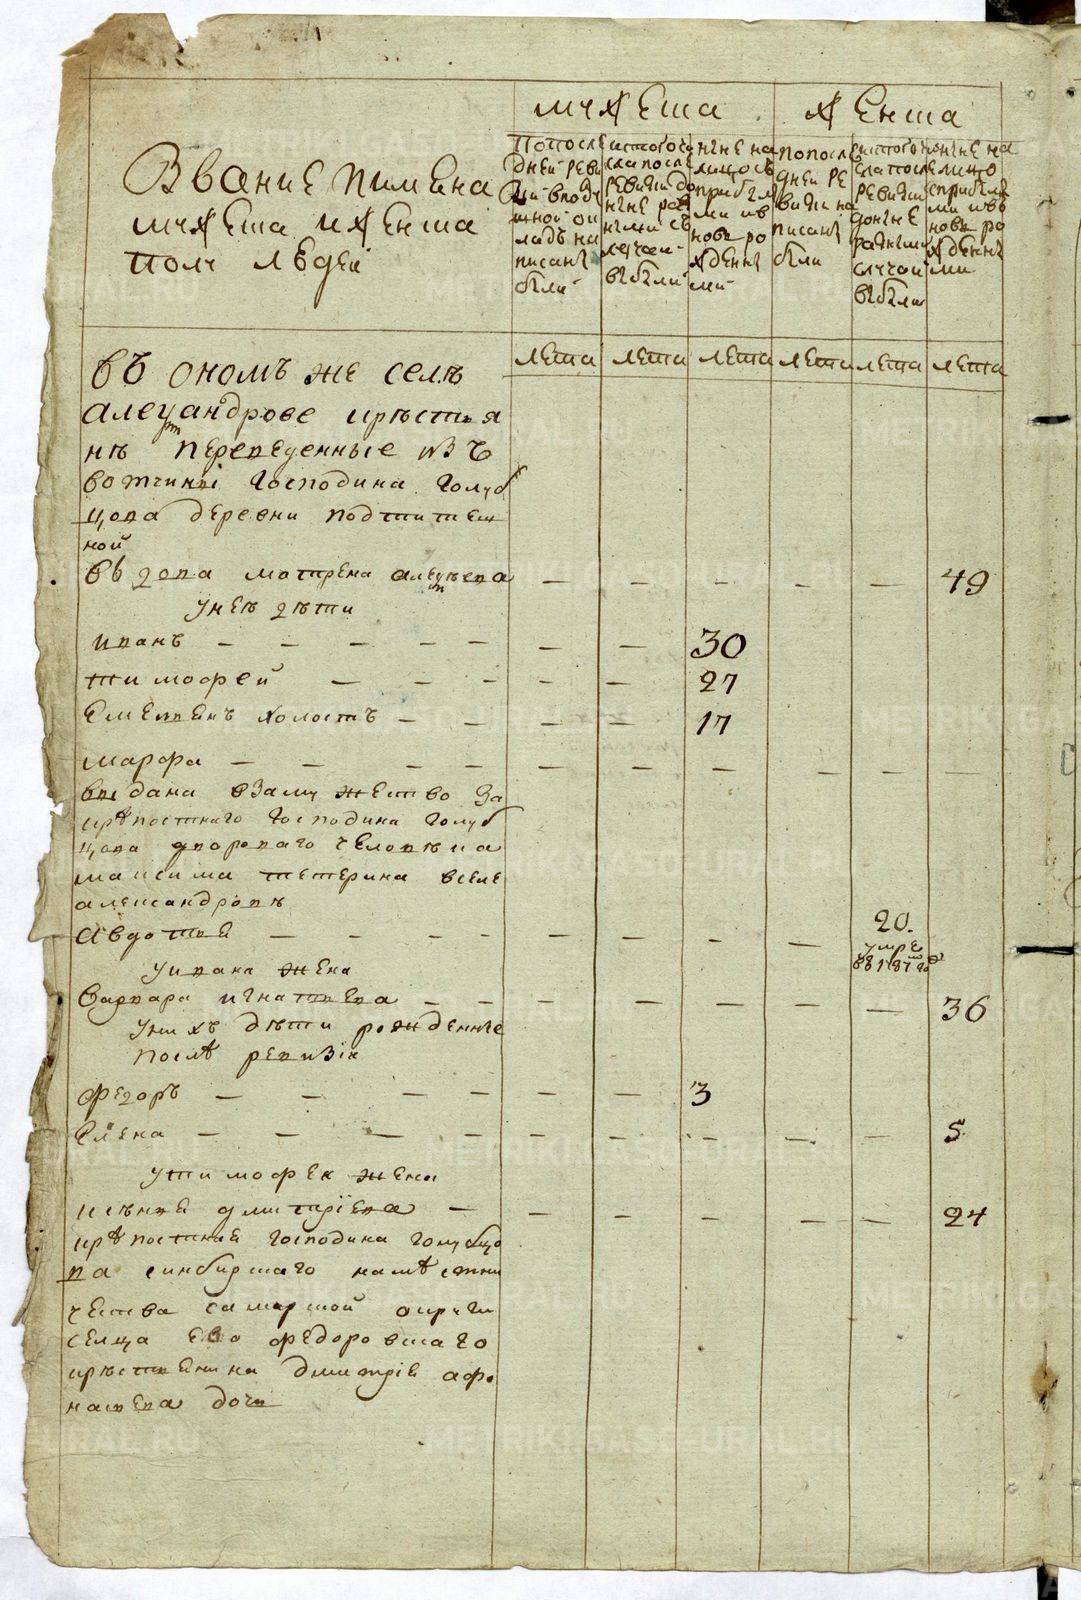 Звание имена
мужеска и женска
полу людей
мужеска
женска
По после
дней реви
зии в подуш
ной ок
ладъ на
писаны
были
ис того чи
сла после
ревизии до
ныне раз
ными сл
учаи
выбыли
ныне на
лицо съ
прибыл
ми и вновь ро
жденны
ми
по после
дней ре
визии на
писаны
были
ис того чи
сла после
ревизии
до ныне
разными
случаи
выбыли
ныне на
лицо
с прибыл
ми и въ
новь ро
жденны
ми
лета лета лета лета лета лета
въ ономъ же селѣ
александрове крѣстья
нѣ переведенные изъ
вотчины господина голуб
цова деревни подтитеш
ной
вдова матрена алексѣева — — — — — 49
у неѣ дѣти
иванъ — — — — — — 30
тимофей — — — — — 27
емельянъ холостъ — — — — 17
марфа — — — — — — — — — —
выдана взамужество за
крѣпостнаго господина голуб
цова двороваго человѣка
максима тетерина в селе
александровѣ
авдотья — — — — — — — — 20.
умре
въ 1787 годе
у ивана жена
варвара игнатьева — — — — — — — 36
у нихъ дѣти рожденные
послѣ ревизіи
федоръ — — — — — — 3
елена — — — — — — — — — 5
у тимофея жена
ксѣнья дмитріева — — — — — — 24
крѣпостныя господина голубцо
ва синбирскаго намѣстни
чества самарской округи
селца ево федоровскаго
крѣстьянина дмитрія афо
насьева дочь
METRIKI.GASO-URAL.RU